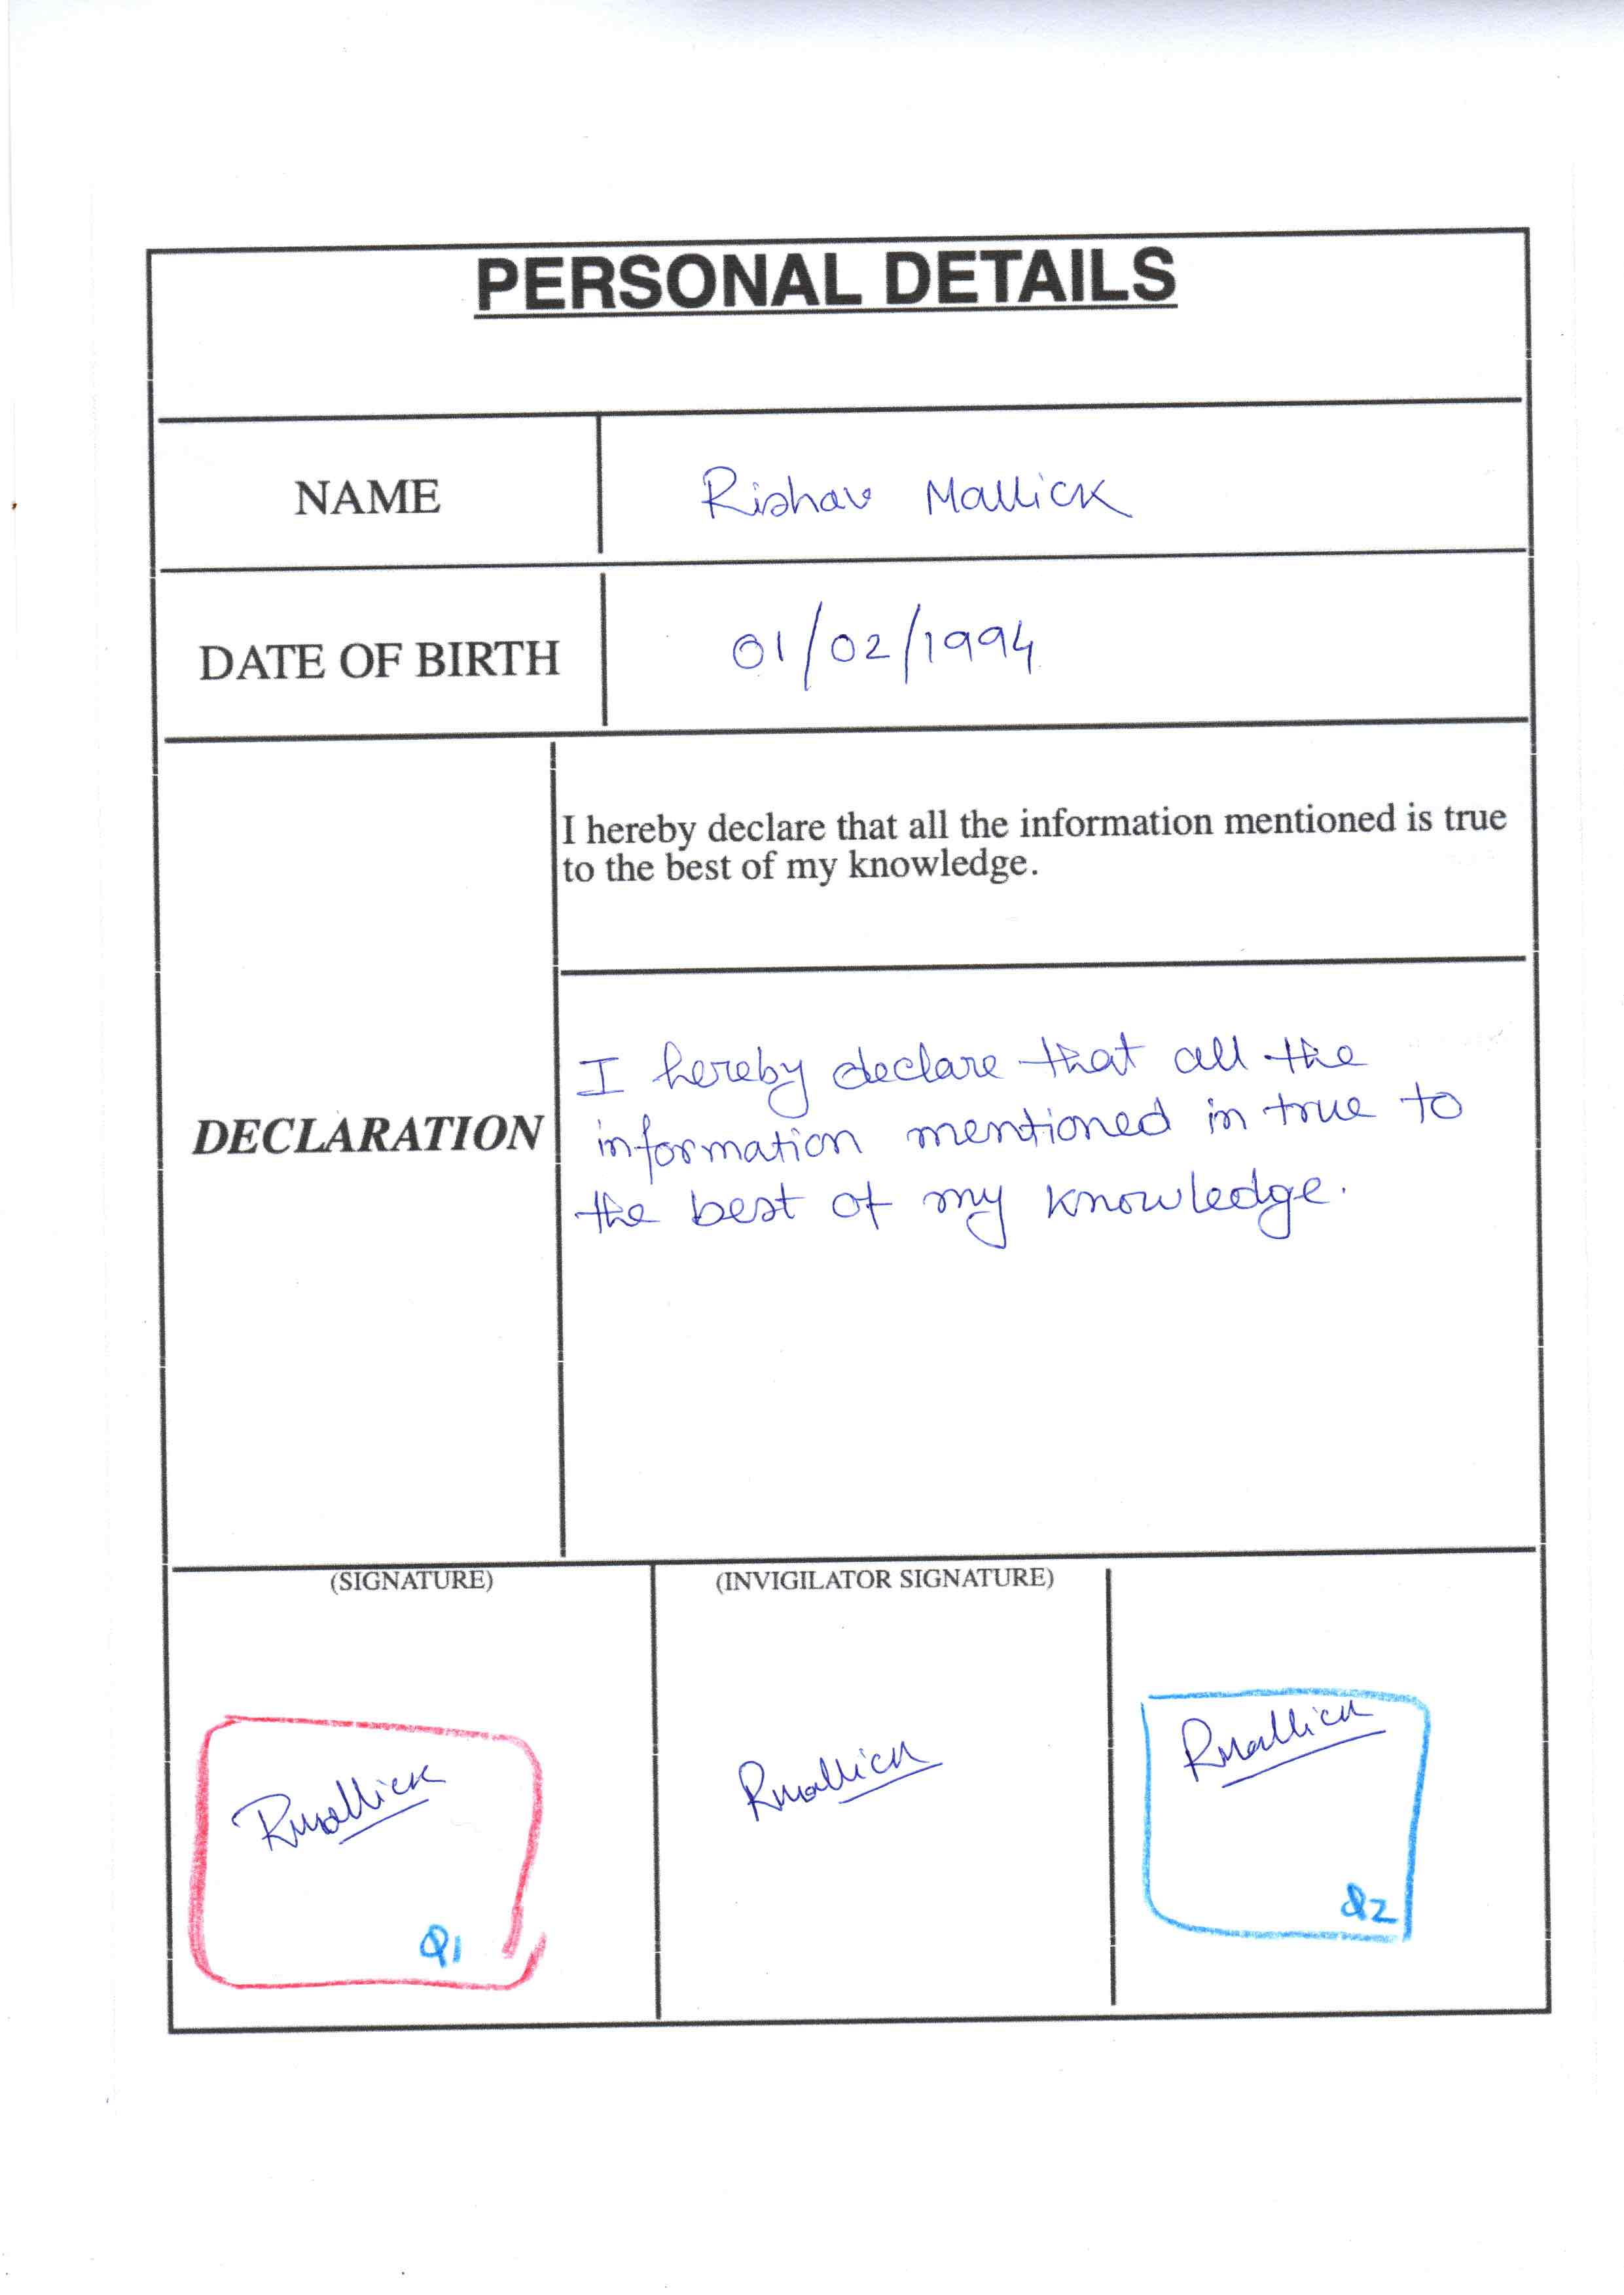 PERSONAL DETAILS
NAME
Rishav Mallick
DATE OF BIRTH
01/02/1994
I hereby declare that all the information mentioned is true
to the best of my knowledge.
DECLARATION
I hereby declare that all the
information mentioned in true to
the best of my knowledge.
(SIGNATURE)
(INVIGILATOR SIGNATURE)
Rmallick
Rmallick
Rmallick
Q1
Q2